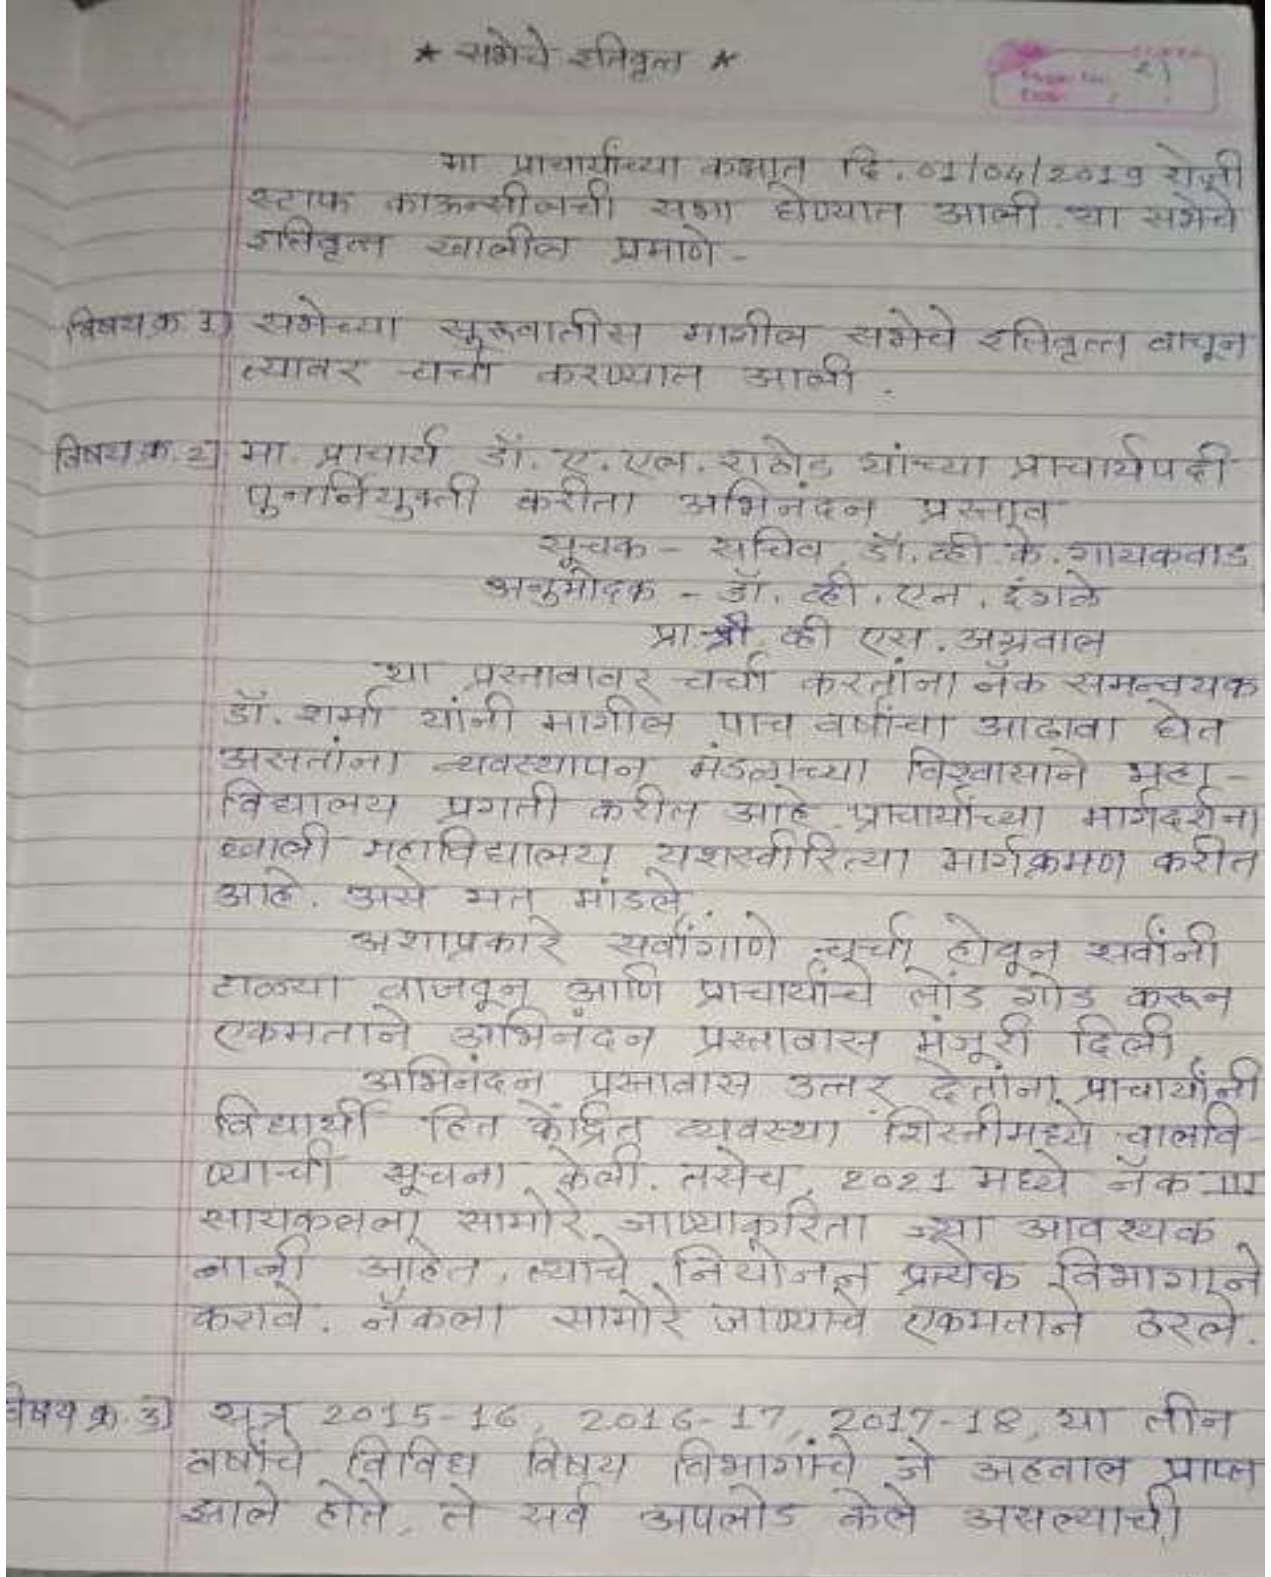 * सभेचे इतिवृत्त *
Page No. 21
Date: / /
मा प्राचार्यांच्या कक्षात दि. 01/04/2019 रोजी
स्टाफ काऊन्सीलची सभा घेण्यात आली. या सभेचे
इतिवृत्त खालील प्रमाणे -
विषय क्र. 1) सभेच्या सुरूवातीस मागील सभेचे इतिवृत्त वाचून
त्यावर चर्चा करण्यात आली.
विषय क्र. 2) मा. प्राचार्य डॉ. ए. एल. राठोड यांच्या प्राचार्यपदी
पुनर्नियुक्ती करीता अभिनंदन प्रस्ताव
सूचक - सचिव, डॉ. व्ही. के. गायकवाड
अनुमोदक - डॉ. व्ही. एन. इंगळे
प्रा. श्री. व्ही एस. अग्रवाल
या प्रस्तावावर चर्चा करतांना नॅक समन्वयक
डॉ. शर्मा यांनी मागील पाच वर्षांचा आढावा घेत
असतांना व्यवस्थापन मंडळाच्या विश्वासाने महा-
विद्यालय प्रगती करीत आहे. प्राचार्यांच्या मार्गदर्शना
खाली महाविद्यालय यशस्वीरित्या मार्गक्रमण करीत
आहे. असे मत मांडले.
अशाप्रकारे सर्वांगाणे चर्चा होवून सर्वांनी
टाळ्या वाजवून आणि प्राचार्यांचे तोंड गोड करून
एकमताने अभिनंदन प्रस्तावास मंजूरी दिली
अभिनंदन प्रस्तावास उत्तर देतांना प्राचार्यांनी
विद्यार्थी हित केंद्रित व्यवस्था शिस्तीमध्ये चालवि-
ण्याची सूचना केली. तसेच, 2021 मध्ये नॅक III
सायकलला सामोरे जाण्याकरिता ज्या आवश्यक
बाबी आहेत, त्याचे नियोजन प्रत्येक विभागाने
करावे. नॅकला सामोरे जाण्याचे एकमताने ठरले.
विषय क्र. 3) सत्र 2015-16, 2016-17, 2017-18, या तीन
वर्षांचे विविध विषय विभागांचे जे अहवाल प्राप्त
झाले होते, ते सर्व अपलोड केले असल्याची